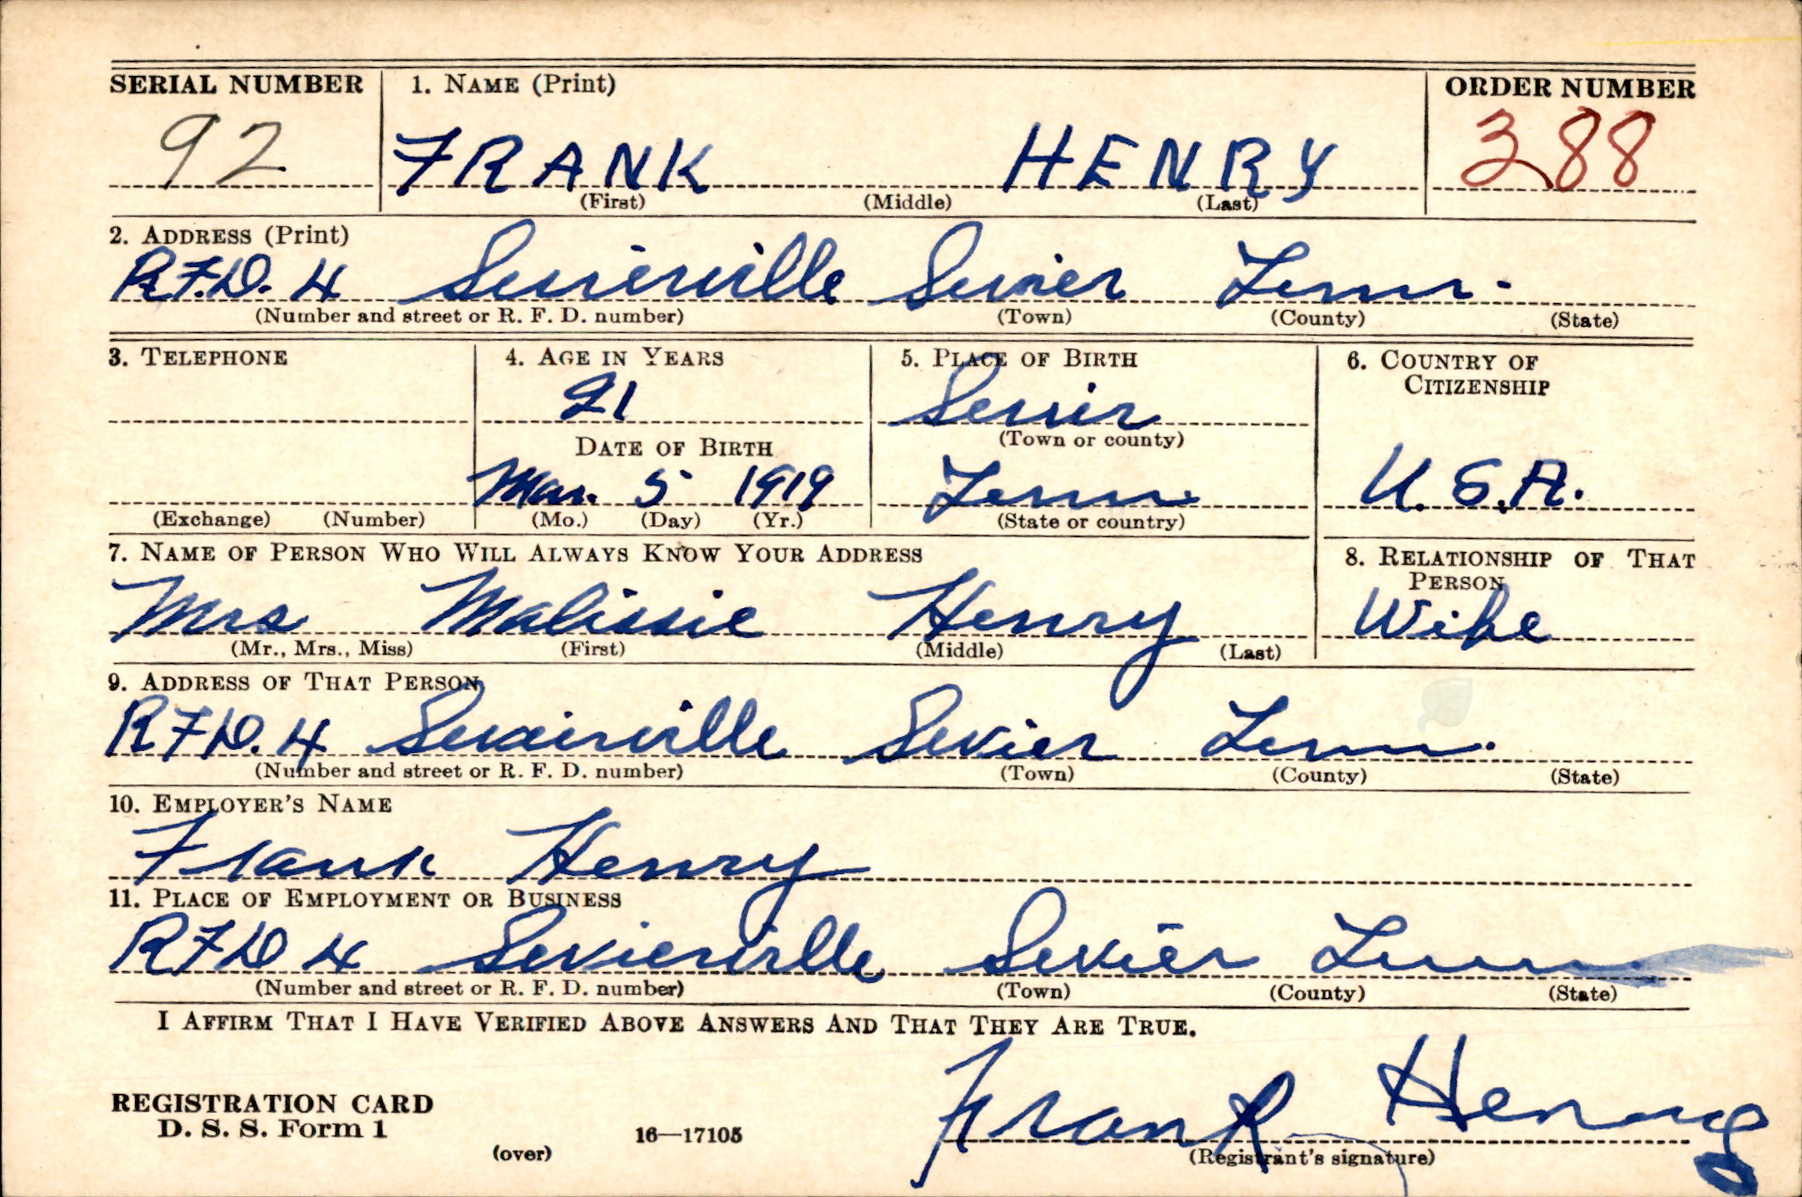 SERIAL NUMBER 1. NAME (Print) ORDER NUMBER
92 FRANK HENRY 388
(First) (Middle) (Last)
2. ADDRESS (Print)
R.F.D. 4 Sevierville Sevier Tenn.
(Number and street or R. F. D. number) (Town) (County) (State)
3. TELEPHONE 4. AGE IN YEARS 5. PLACE OF BIRTH 6. COUNTRY OF CITIZENSHIP
21 Sevier
DATE OF BIRTH (Town or county)
Mar. 5 1919 Tenn U.S.A.
(Exchange) (Number) (Mo.) (Day) (Yr.) (State or country)
7. NAME OF PERSON WHO WILL ALWAYS KNOW YOUR ADDRESS 8. RELATIONSHIP OF THAT PERSON
Mrs Malissie Henry Wife
(Mr., Mrs., Miss) (First) (Middle) (Last)
9. ADDRESS OF THAT PERSON
RFD. 4 Sevierville Sevier Tenn.
(Number and street or R. F. D. number) (Town) (County) (State)
10. EMPLOYER'S NAME
Frank Henry
11. PLACE OF EMPLOYMENT OR BUSINESS
RFD 4 Sevierville Sevier Tenn
(Number and street or R. F. D. number) (Town) (County) (State)
I AFFIRM THAT I HAVE VERIFIED ABOVE ANSWERS AND THAT THEY ARE TRUE.
Frank Henry
REGISTRATION CARD
D. S. S. Form 1
(over) 16—17105 (Registrant's signature)